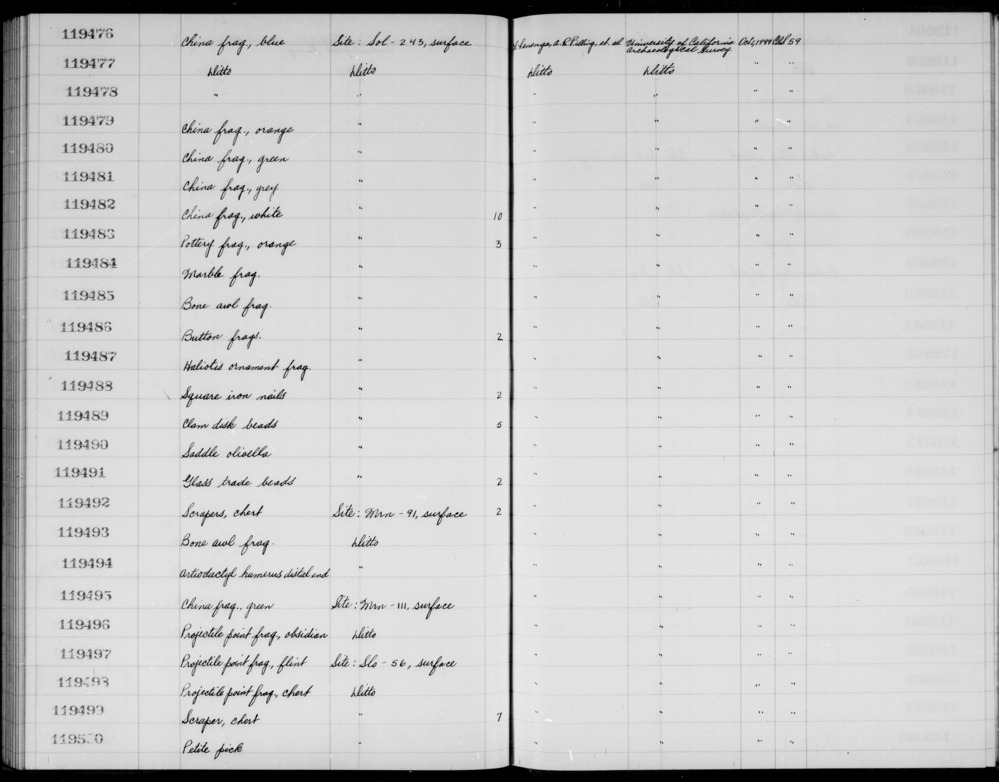 119476 China frag., blue Site: Sol - 243, surface et. al University of California Archaeological Survey Oct, 1949 59
119477 Ditto Ditto Ditto Ditto " "
119478 " " " " " "
119479 China frag., orange " " " " "
119480 China frag., green " " " " "
119481 China frag., grey " " " " "
119482 China frag., white " 10 " " " "
119483 Pottery frag., orange " 3 " " " "
119484 Marble frag. " " " " "
119485 Bone awl frag. " " " " "
119486 Button frags. " 2 " " " "
119487 Haliotis ornament frag. " " " " "
119488 Square iron nails " 2 " " " "
119489 Clam disk beads " 5 " " " "
119490 Saddle olivella " " " " "
119491 Glass trade beads " 2 " " " "
119492 Scrapers, chert Site: Mrn - 91, surface 2 " " " "
119493 Bone awl frag. Ditto " " " "
119494 Artiodactyl humerus distal end " " " " "
119495 China frag., green Site: Mrn - 111, surface " " " "
119496 Projectile point frag, obsidian Ditto " " " "
119497 Projectile point frag, flint Site: Slo - 56, surface " " " "
119498 Projectile point frag, chert Ditto " " " "
119499 Scraper, chert " 7 " " " "
119500 Petite pick " " " " "